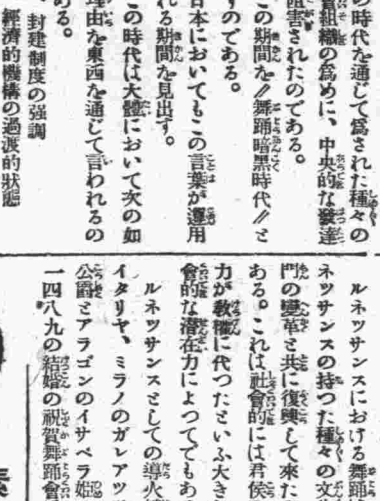 の時代を通じて爲された種々の
會組織の爲めに、中央的な發達
阻害されたのである。
この期間を〃舞踊暗黒時代〃と
すのである。
日本においてもこの言葉が運用
れる期間を見出す。
この時代は大體において次の如
理由を東西を通じて言われるの
ある。
封建制度の强調
經濟的機構の過渡的狀態
ルネッサンスにおける舞踊
ネッサンスの持つた種々の文
門の變革と共に復興して來た
ある。これは社會的には君侯
力が敎權に代つたといふ大き
會的な潜在力によつてでもあ
ルネッサンスとしての導火
イタリヤ、ミラノのガレアッツ
公爵とアラゴンのイサベラ姫
一四八九の結婚の祝賀舞踊會